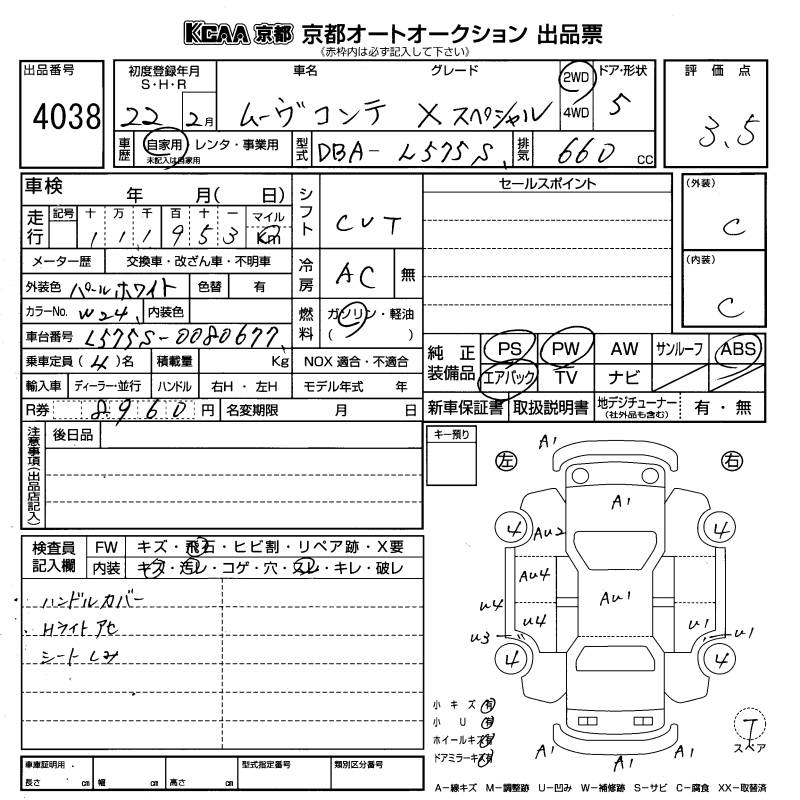 KCAA 京都 京都オートオークション 出品票
(赤枠内は必ず記入して下さい)
出品番号 4038
初度登録年月 S・H・R 22 2月
車名 ムーヴコンテ
グレード Xスペシャル
2WD 4WD
ドア・形状 5
評価点 3.5
車歴 自家用 レンタ・事業用
未記入は自家用
型式 DBA-L575S
排気 660 cc
車検 年 月( 日)
走行 記号 十 万 千 百 十 一 マイル
111953 Km
シフト CVT
メーター歴 交換車・改ざん車・不明車
冷房 AC 無
外装色 パールホワイト 色替 有
カラーNo. W24 内装色
燃料 ガソリン・軽油
( )
車台番号 L575S-0080677
乗車定員 (4)名 積載量 Kg NOX 適合・不適合
輸入車 ディーラー・並行 ハンドル 右H・左H モデル年式 年
R券 8960 円 名変期限 月 日
セールスポイント
(外装) C
(内装) C
純正装備品 PS PW AW サンルーフ ABS
エアバック TV ナビ
新車保証書 取扱説明書 地デジチューナー (社外品も含む) 有・無
注意事項(出品店記入) 後日品
キー預り
左 右
A1
A1
4 4
AU2
AU4 AU1
U4 U4 U1 U1
U3
4 4
A1 A1 A1
検査員記入欄 FW キズ・飛石・ヒビ割・リペア跡・X要
内装 キズ・汚レ・コゲ・穴・スレ・キレ・破レ
・ハンドルカバー
・Hライト AC
・シートしみ
小キズ 有
小U 有
ホイールキズ 有
ドアミラーキズ 有
T
スペア
車庫証明用・ 長さ cm 幅 cm 高さ cm 型式指定番号 類別区分番号
A-線キズ M-調整跡 U-凹み W-補修跡 S-サビ C-腐食 XX-取替済